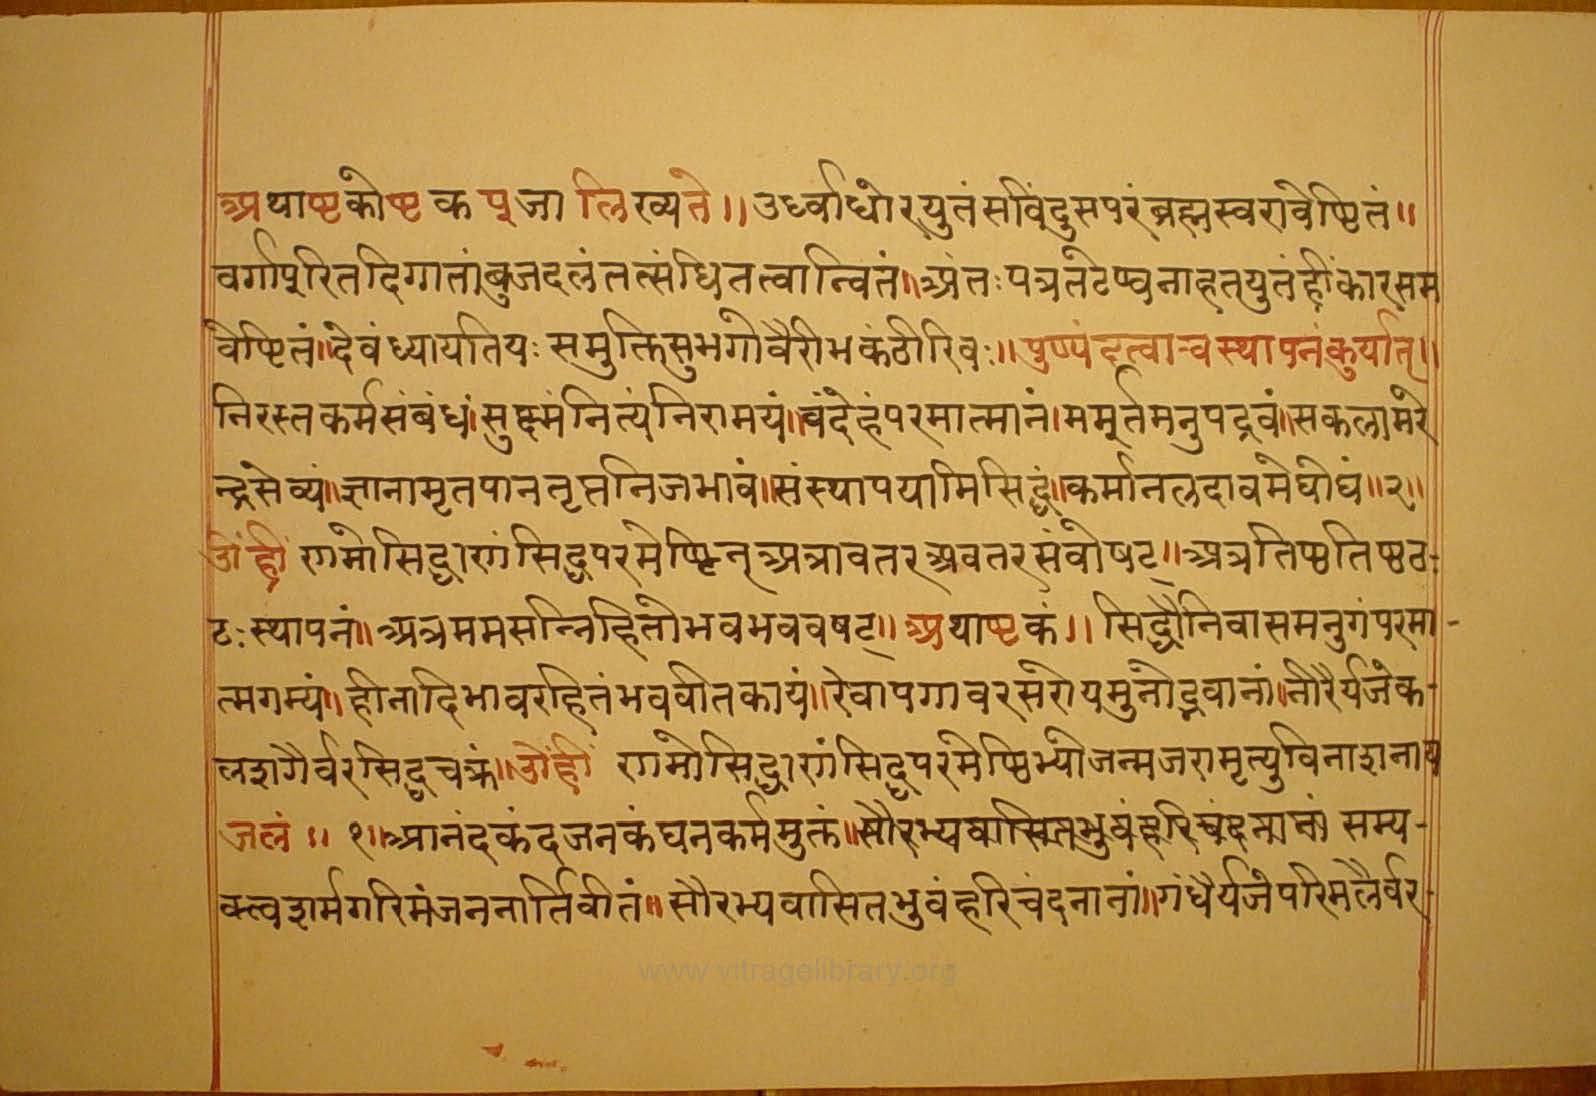 अथाष्टकोष्टक पूजा लिख्यते॥ उर्ध्वाधोरयुतंसविंदुसपरंब्रह्मस्वरावेष्टितं॥
वर्गापूरितदिगातांबुजदलंतत्संधितत्वान्वितं॥अंतःपत्रतटेष्वनाहतयुतंह्रींकारसम
वेष्टितं॥देवंध्यायतियः समुक्तिसुभगोवैरीभकंठीरिवः॥पुष्पंदत्वाऽवस्थापनंकुर्यात्॥
निरस्तकर्मसंबंधं।सुक्ष्मंनित्यंनिरामयं॥वंदेहंपरमात्मानं।ममूर्तमनुपद्रवं॥सकलामरे
न्द्रसेव्यं॥ज्ञानामृतपानतृप्तनिजभावं॥संस्थापयामिसिद्धं॥कर्मानलदावमेघौघं॥२॥
ओंह्रीं णमोसिद्धाणंसिद्धपरमेष्टिन्अत्रावतरअवतरसंवोषट्॥अत्रतिष्ठतिष्ठठ-
ठःस्थापनं॥अत्रममसन्निहितोभवभववषट्॥अथाष्टकं॥ सिद्धौनिवासमनुगंपरमा-
त्मगम्यं॥हीनादिभावरहितंभववीतकायं॥रेवापगावरसरोयमुनोद्भवानां।नीरैर्यजेक-
लशगैर्वरसिद्धचक्रं॥ओंह्रीं णमोसिद्धाणंसिद्धपरमेष्ठिभ्योजन्मजरामृत्युविनाशनाय
जलं॥ १॥आनंदकंदजनकंघनकर्ममुक्तं॥सौरभ्यवासितभुवंहरिचंदनानां सम्य-
क्त्वशर्मगरिमंजननार्तिवीतं॥सौरभ्यवासितभुवंहरिचंदनानां॥गंधैर्यजेपरिमलैर्वर-
www.vitragelibrary.org